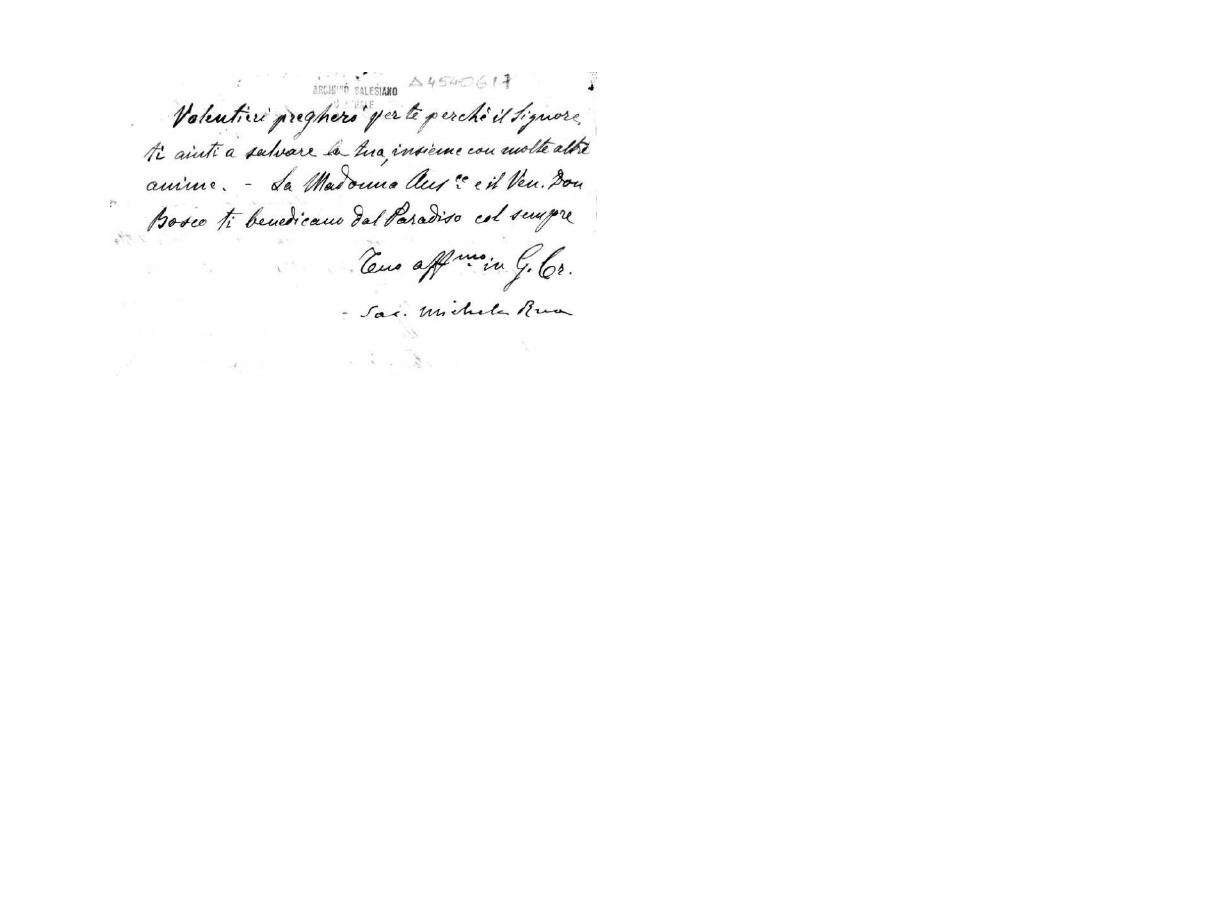 A4540617
ARCHIVIO SALESIANO
Volentieri pregherò per te perchè il Signore
ti aiuti a salvare la tua, insieme con molte altre
anime. - La Madonna Aus.ce e il Ven. Don
Bosco ti benedicano dal Paradiso col sempre
Tuo aff.mo in G. Cr.
- Sac. Michele Rua